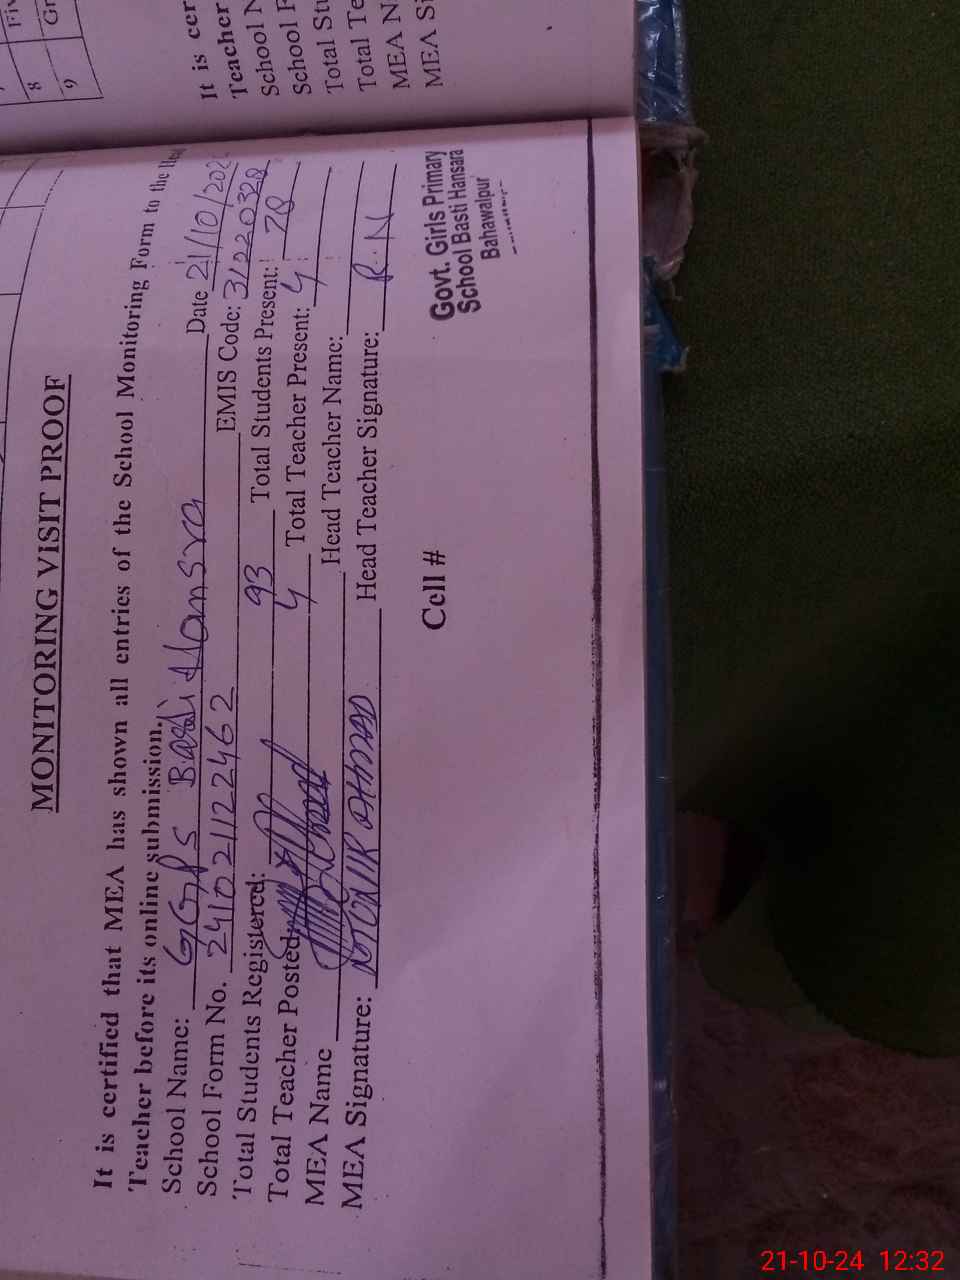 8
9
MONITORING VISIT PROOF
It is certified that MEA has shown all entries of the School Monitoring Form to the Head
Teacher before its online submission.
School Name: GGPS Basti Hansra Date 21/10/202
School Form No. 24102112462 EMIS Code: 31220328
Total Students Registered: 93 Total Students Present: 78
Total Teacher Posted 4 Total Teacher Present: 4
MEA Name Head Teacher Name:
MEA Signature: AHMAD Head Teacher Signature: R.N
Cell #
Govt. Girls Primary
School Basti Hansara
Bahawalpur
It is cer
Teacher
School N
School F
Total Stu
Total Te
MEA N
MEA Si
21-10-24 12:32